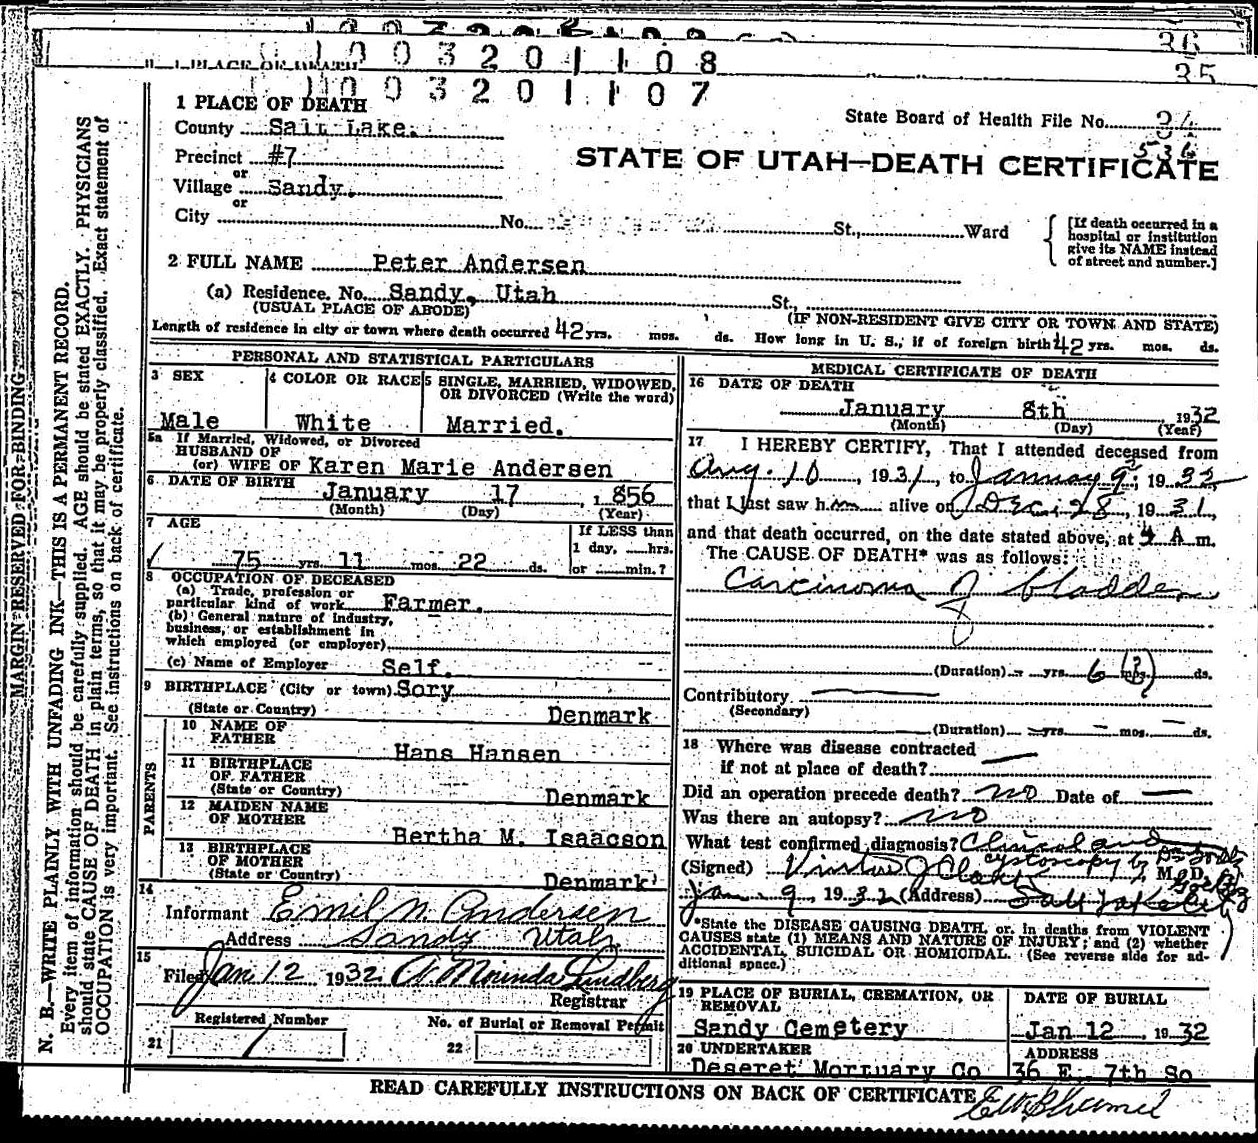 36
1003201108
35
1 PLACE OF DEATH
1003201107
1 PLACE OF DEATH
State Board of Health File No. 34
536
County Salt Lake.
Precinct #7
or
Village Sandy.
or
STATE OF UTAH—DEATH CERTIFICATE
City No. St., Ward
[If death occurred in a
hospital or institution
give its NAME instead
of street and number.]
2 FULL NAME Peter Andersen
(a) Residence. No. Sandy, Utah St.,
(USUAL PLACE OF ABODE) (IF NON-RESIDENT GIVE CITY OR TOWN AND STATE)
Length of residence in city or town where death occurred 42 yrs. mos. ds. How long in U. S., if of foreign birth 42 yrs. mos. ds.
PERSONAL AND STATISTICAL PARTICULARS
3 SEX
Male
4 COLOR OR RACE
White
5 SINGLE, MARRIED, WIDOWED,
OR DIVORCED (Write the word)
Married.
5a If Married, Widowed, or Divorced
HUSBAND OF
(or) WIFE OF Karen Marie Andersen
6 DATE OF BIRTH
January 17 1856
(Month) (Day) (Year)
7 AGE
75 yrs. 11 mos. 22 ds.
If LESS than
1 day, hrs.
or min.?
8 OCCUPATION OF DECEASED
(a) Trade, profession or
particular kind of work Farmer.
(b) General nature of industry,
business, or establishment in
which employed (or employer)
(c) Name of Employer Self. --
9 BIRTHPLACE (City or town) Sory
(State or Country) Denmark
PARENTS
10 NAME OF
FATHER Hans Hansen
11 BIRTHPLACE
OF FATHER
(State or Country) Denmark
12 MAIDEN NAME
OF MOTHER Bertha M. Isaacson
13 BIRTHPLACE
OF MOTHER
(State or Country) Denmark
14
Informant Emil N. Andersen
Address Sandy Utah
15
Filed Jan 12 1932 A. Morinda Lindberg
Registrar
Registered Number
21 1
No. of Burial or Removal Permit
22
MEDICAL CERTIFICATE OF DEATH
16 DATE OF DEATH
January 8th 1932
(Month) (Day) (Year)
17 I HEREBY CERTIFY, That I attended deceased from
Aug. 10, 1931, to January 9, 1932,
that I last saw him alive on Dec. 28, 1931,
and that death occurred, on the date stated above, at 4 A m.
The CAUSE OF DEATH* was as follows:
Carcinoma of bladder
(Duration) yrs. 6 (?) mos. ds.
Contributory
(Secondary)
(Duration) yrs. mos. ds.
18 Where was disease contracted
if not at place of death?
Did an operation precede death? no Date of
Was there an autopsy? no
What test confirmed diagnosis? Clinical and
cystoscopy by
(Signed) M. D.
Jan 9, 1932 (Address) Salt Lake City
*State the DISEASE CAUSING DEATH, or, in deaths from VIOLENT
CAUSES state (1) MEANS AND NATURE OF INJURY; and (2) whether
ACCIDENTAL, SUICIDAL OR HOMICIDAL. (See reverse side for ad-
ditional space.)
19 PLACE OF BURIAL, CREMATION, OR
REMOVAL
Sandy Cemetery
DATE OF BURIAL
Jan 12, 1932
20 UNDERTAKER
Deseret Mortuary Co
ADDRESS
36 E. 7th So
READ CAREFULLY INSTRUCTIONS ON BACK OF CERTIFICATE
MARGIN RESERVED FOR BINDING
N. B.—WRITE PLAINLY WITH UNFADING INK—THIS IS A PERMANENT RECORD.
Every item of information should be carefully supplied. AGE should be stated EXACTLY. PHYSICIANS
should state CAUSE OF DEATH in plain terms, so that it may be properly classified. Exact statement of
OCCUPATION is very important. See instructions on back of certificate.